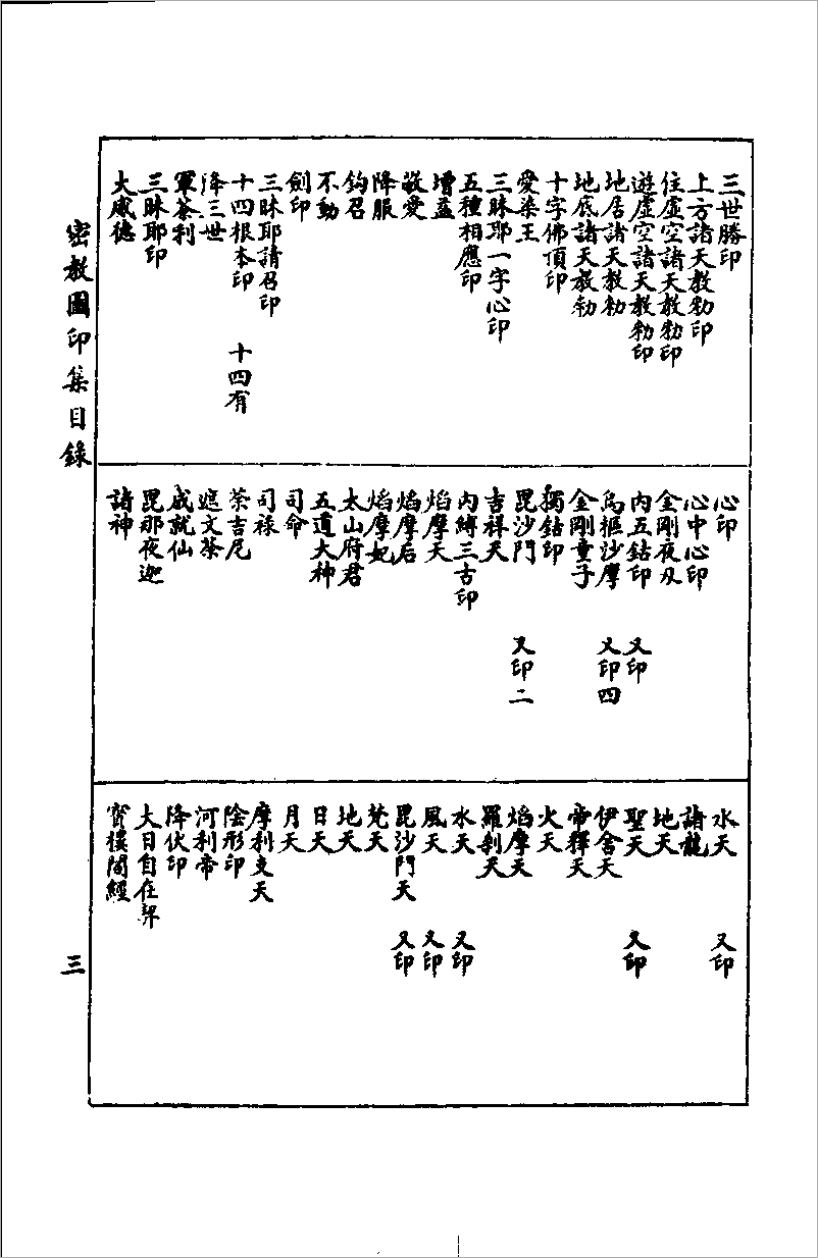 三世勝印
上方諸天教勅印
住虛空諸天教勅印
遊虛空諸天教勅印
地居諸天教勅
地底諸天教勅
十字佛頂印
愛染王
三昧耶一字心印
五種相應印
增益
敬愛
降服
鈎召
不動
劍印
三昧耶請召印
十四根本印 十四有
降三世
軍荼利
三昧耶印
大威德
心印
心中心印
金剛夜叉
內五鈷印 又印
烏樞沙摩 又印四
金剛童子
獨鈷印
毘沙門 又印二
吉祥天
內縛三古印
焰摩天
焰摩后
焰摩妃
太山府君
五道大神
司命
司祿
荼吉尼
遮文荼
成就仙
毘那夜迦
諸神
水天 又印
諸龍
地天
聖天 又印
伊舍天
帝釋天
火天
焰摩天
羅刹天
水天 又印
風天 又印
毘沙門天 又印
梵天
地天
日天
月天
摩利支天
陰形印
河利帝
降伏印
大日自在契
寶樓閣經
密教圖印集目錄
三